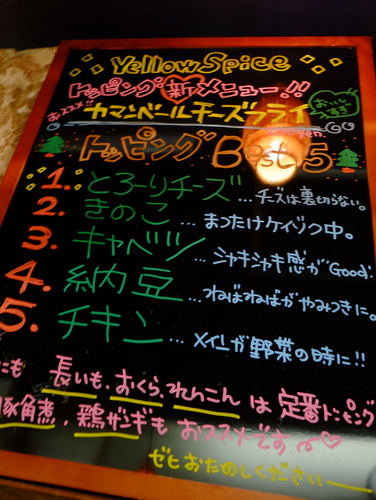 Yellow Spice
トッピング新メニュー!!
おススメ!! カマンベールチーズフライ
おいしすぎ
トッピング Best 5
1. とろーりチーズ …チーズは裏切らない。
2. きのこ … まつたけケイゾク中。
3. キャベツ … シャキシャキ感がGood.
4. 納豆 … ねばねばがやみつきに。
5. チキン … メインが野菜の時に!!
にも 長いも、おくら、れんこん は 定番トッピング
豚角煮、鶏ザンギも おススメです。
ゼヒおためしください